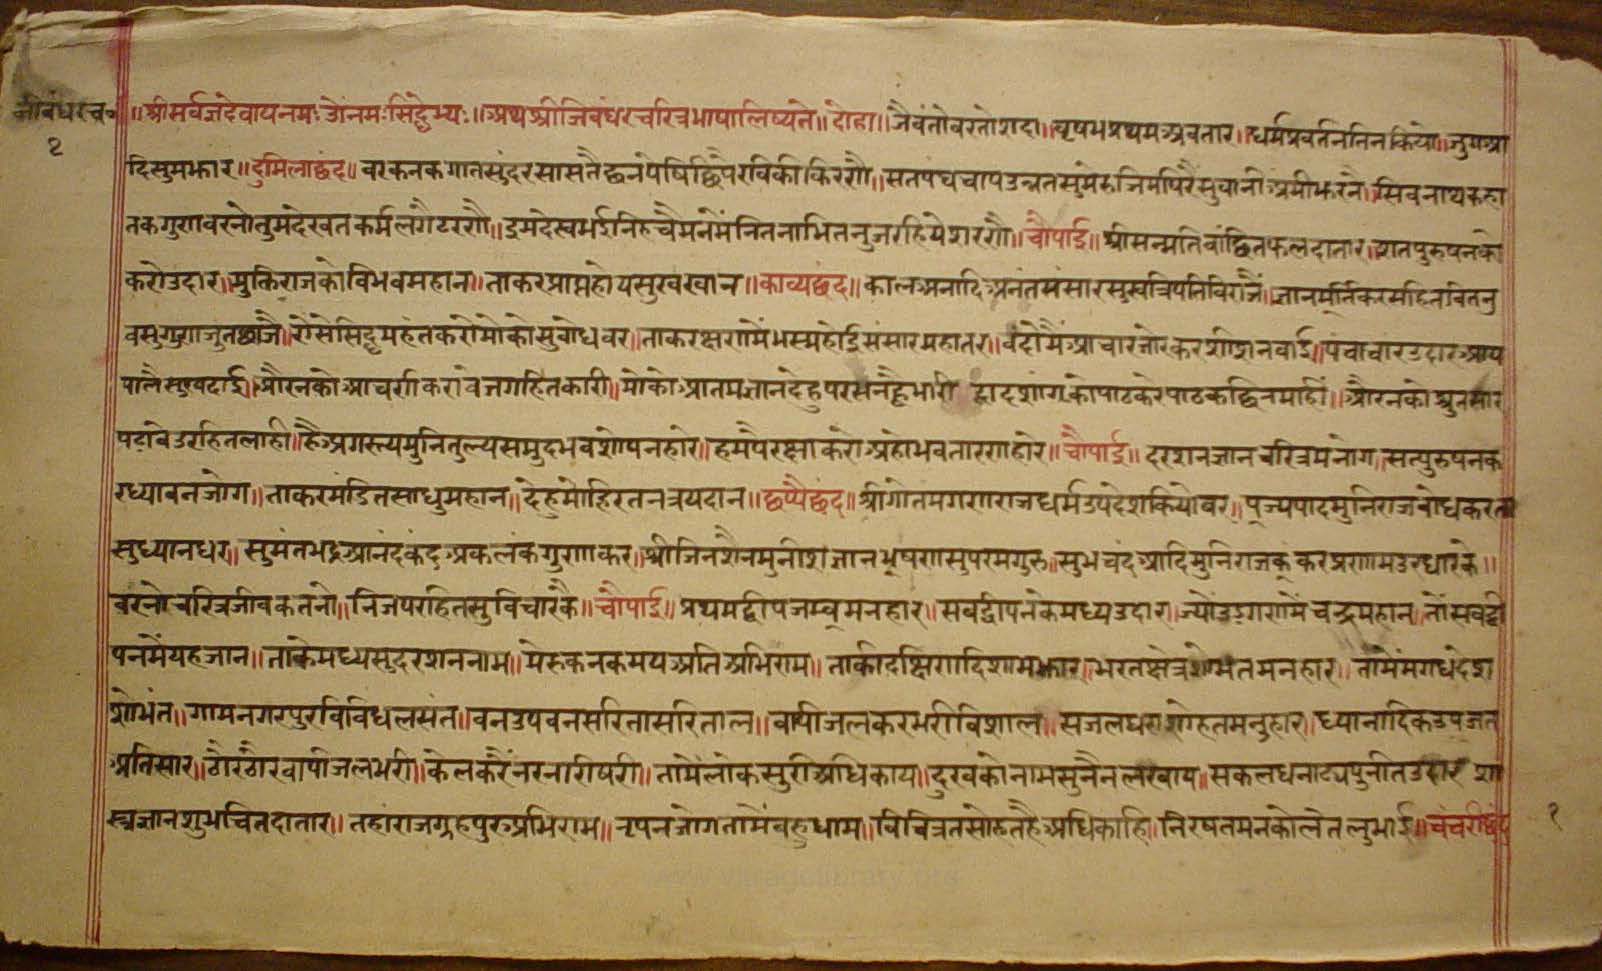 जीवंधरच॰ ॥श्रीसर्वज्ञदेवायनमः ॐनमःसिद्धेभ्यः॥ अथश्रीजिवंधरचरित्रभाषालिष्यते॥ दोहा॥ जैवंतोवरतोशदा॥ वृषभप्रथमअवतार॥ धर्मप्रवर्तनतिनकियो॥ जुगआ
२
दिसुमझार॥ दुमिलाछंद॥ वरकनकगातसुंदरसासतै रविकीकिरणौ॥ सतपंचचापउन्नतसुमेरुजिम सिवनाथकहा
तकगुणवरनोतुमदेखतकर्मलगैटरणौ॥ नितनाभितनुजरहियेशरणौ॥ चौपाई॥ श्रीसन्मतिवांछितफलदातार॥ शातपुरुषनको
करोउदार॥ मुक्तिराजकोविभवमहान॥ ताकरप्राप्तहोयसुखखान॥ काव्यछंद॥ कालअनादिअनंतसंसार ज्ञानमूर्तिकरसहितवितनु
वसुगुणजुतछाजै॥ ऐसेसिद्धमहंतकरोमोकोसुबोधवर॥ ताकरक्षणमेंभस्महोईसंसारमहातर॥ वंदोमैंआचारजोरकरशीशनवाई॥ पंचाचारउदारआप
पालैसुखदाई॥ औरनकोआचरणकरावेजगहितकारी॥ मोकोआतमज्ञानदेहु द्वादशांगकोपाठकरेपाठकछिनमाही॥ औरनकोअनुसार
पढावेउरहितलाही॥ हैअगस्त्यमुनितुल्यसमुदभवशोषनहारे॥ हमपैरक्षाकरोअहोभवतारणहारे॥ चौपाई॥ दरशनज्ञानचरित्रमनोग॥ सत्पुरुषनक
रध्यावनजोग॥ ताकरमंडितसाधुमहान॥ देहुमोहिरतनत्रयदान॥ छप्पैछंद॥ श्रीगोतमगणराजधर्मउपदेशकियोवर॥ पूज्यपादमुनिराजबोधकरता
सुध्यानधर॥ सुमंतभद्रआनंदकंदअकलंकगुणाकर॥ श्रीजिनशैनमुनीशज्ञानभूषणसुपरमगुरु॥ सुभचंदआदिमुनिराजकूकरप्रणामउरधारके॥
वरनोचरित्रजीवकतनो॥ निजपरहितसुविचारकै॥ चौपाई॥ प्रथमद्वीपजम्बूमनहार॥ सबद्वीपनकेमध्यउदार॥ ज्योंउडगणमेंचन्द्रमहान॥ तोंसबद्वी
पनमेंयहजान॥ ताकेमध्यसुदरशननाम॥ मेरुकनकमयअतिअभिराम॥ ताकीदक्षिणदिशामझार॥ भरतक्षेत्रशोभतमनहार॥ तामेंमगधदेश
शोभंत॥ गामनगरपुरविविधलसंत॥ वनउपवनसरितासरिताल॥ वापीजलकरभरीविशाल॥ सजलधराशोहतमनुहार॥ ध्यानादिकउपजत
अतिसार॥ ठौरठौरवापीजलभरी॥ केलकरैंनरनारीषरी॥ तामेंलोकसुखीअधिकाय॥ दुखकोनामसुनैनलखाय॥ सकलधनाढ्यपुनीतउदार शा
स्त्रज्ञानशुभचितदातार॥ तहांराजग्रहपुरअभिराम॥ नृपनजोगतामेंबहुधाम॥ विचित्रतसोहतहैअधिकाहि॥ निरषतमनकोलेतलुभाई॥ चंचरीछंद
१